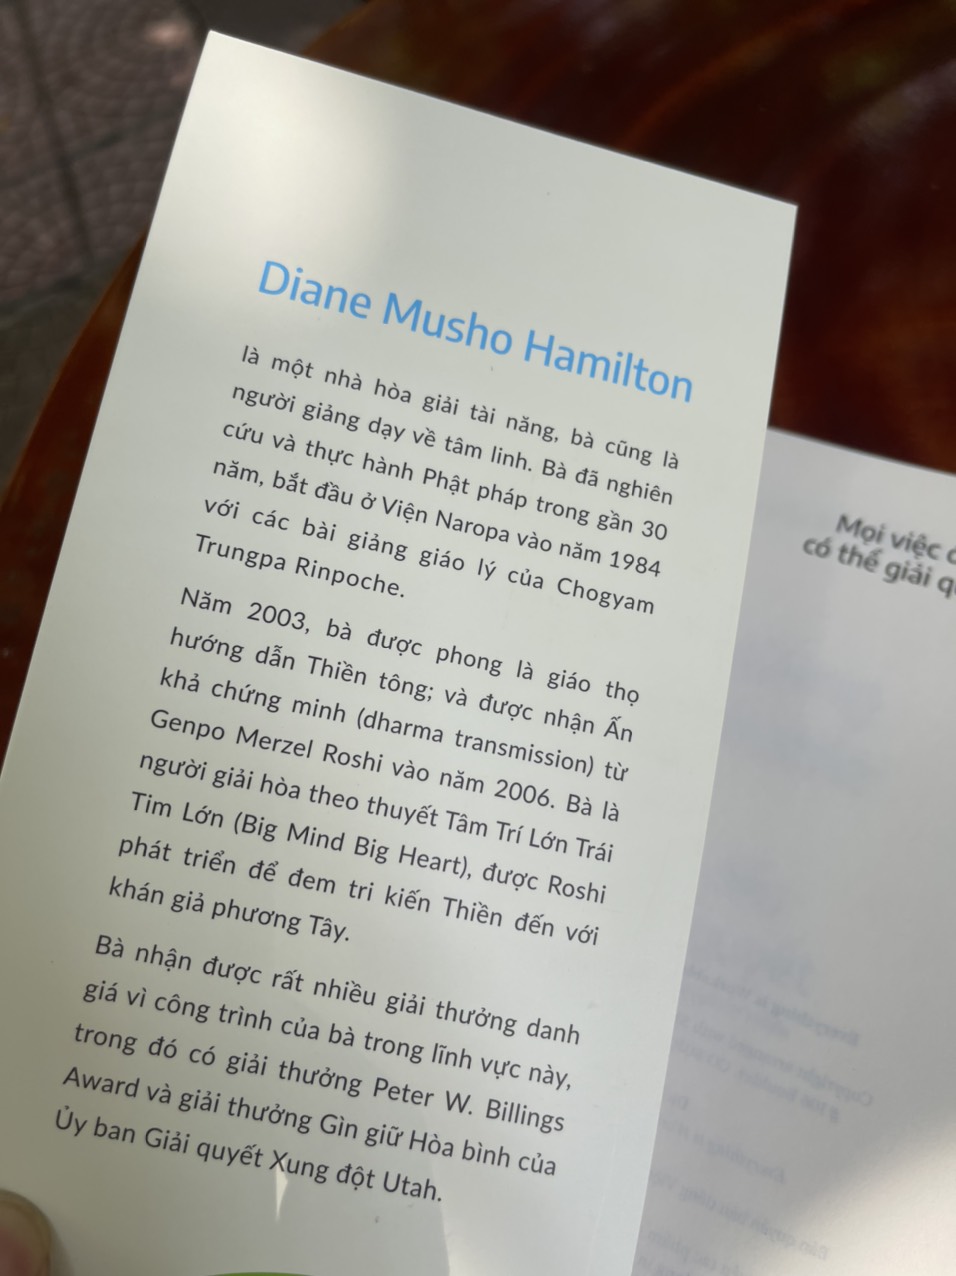 Diane Musho Hamilton
là một nhà hòa giải tài năng, bà cũng là
người giảng dạy về tâm linh. Bà đã nghiên
cứu và thực hành Phật pháp trong gần 30
năm, bắt đầu ở Viện Naropa vào năm 1984
với các bài giảng giáo lý của Chogyam
Trungpa Rinpoche.
Năm 2003, bà được phong là giáo thọ
hướng dẫn Thiền tông; và được nhận Ấn
khả chứng minh (dharma transmission) từ
Genpo Merzel Roshi vào năm 2006. Bà là
người giải hòa theo thuyết Tâm Trí Lớn Trái
Tim Lớn (Big Mind Big Heart), được Roshi
phát triển để đem tri kiến Thiền đến với
khán giả phương Tây.
Bà nhận được rất nhiều giải thưởng danh
giá vì công trình của bà trong lĩnh vực này,
trong đó có giải thưởng Peter W. Billings
Award và giải thưởng Gìn giữ Hòa bình của
Ủy ban Giải quyết Xung đột Utah.
Mọi việc
có thể giải